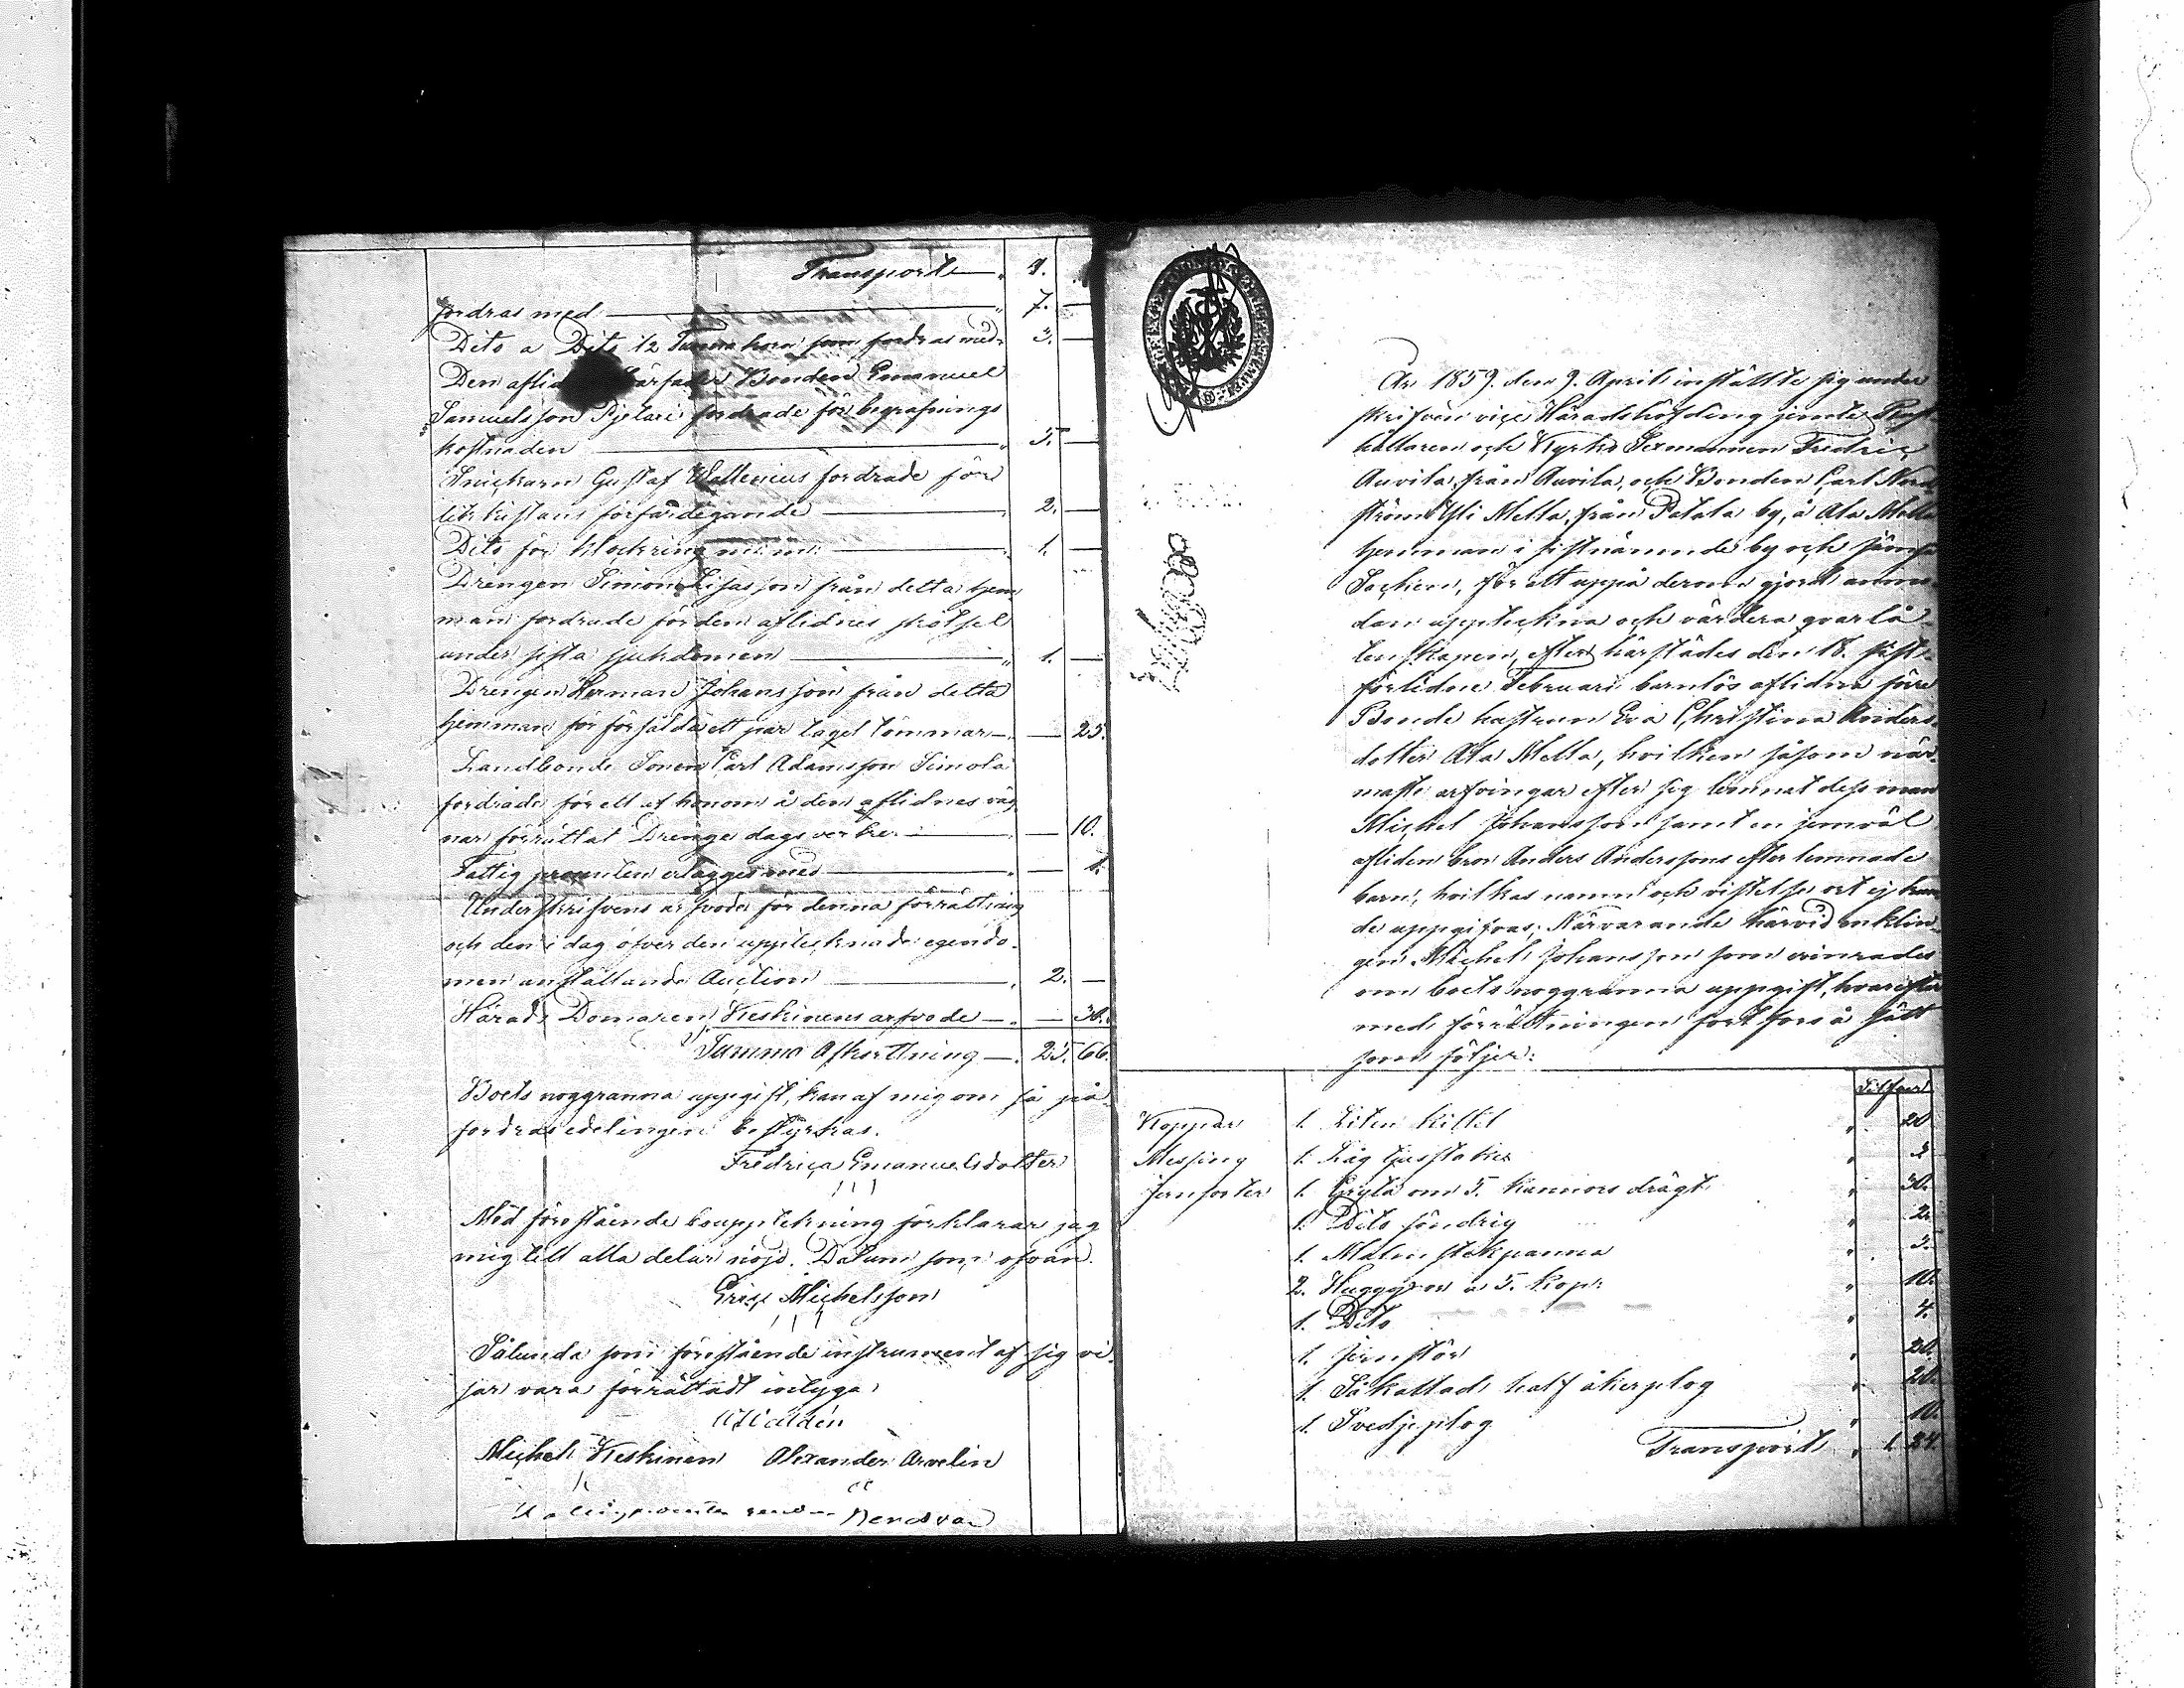 Transport 4.
fordras med 7. —
Dito a Dito 1/2 Tunna korn som fordras med 3. —
Den aflid Bonden Emanuel
Samuelsson Pjelari fordrade för begrafnings
kostnaden 5. —
Snickarn Gustaf Wallenius fordrade för
likkistans förfärdigande 2. —
Dito för klockring 1. —
Drengen Simon Lisasson från detta hem
man fordrade för den aflidnes skötsel
under sista sjukdomen 1. —
Drengen Herman Johansson från detta
hemman för försålda ett par tagel tömmar — 25.
Landbonde Sonen Carl Adamsson Simola
fordrade för ett af honom å den aflidnes väg
nar förrättat Drenge dagsverke — 10.
Fattig procenten erlägges med — 1.
Underskrifvens arfvode för denna förrättning
och den i dag öfver den upptecknade egendo-
men anställande Auction 2. —
Härads Domaren Keskinens arfvode — 30.
Summa Afkortning 25. 66.
Boets noggranna uppgift, kan af mig om så på
fordras edeligen bestyrkas.
Fredrica Emanuelsdotter
Med förestående bouppteckning förklarar jag
mig till alla delar nöjd. Datum som ofvan.
Eric Michelsson
Sålunda som förestående instrument af sig vi-
sar vara förrättadt intyga
Michel Keskinen Alexander Arvelin
År 1859. den 9. April inställte sig under
skrifven vice Häradshöfding jemte
hållaren och Kyrko Sexmannen Fredric
Auvila, från Auvila, och Bonden Carl Nord
ström Yli Mella, från Patala by, å Ala Mella
hemman i sistnämnde by och Jämsä
Sochen, för att uppå derom gjord anmo-
dan uppteckna och värdera qvarlå-
tenskapen, efter härstädes den 18. sist-
förlidne Februari barnlös aflidna förre
Bonde hustrun Eva Christina Anders-
dotter Ala Mella, hvilken såsom när-
maste arfvingar efter sig lemnat dess man
Michel Johansson samt en jemväl
afliden bror Anders Anderssons efterlemnade
barn, hvilkas namn och vistelse ort ej kun
de uppgifvas; Närvarande härvid enklin-
gen Michel Johansson som erinrades
om boets noggranna uppgift, hvarefter
med förrättningen fortfors å sätt
som följer:
Koppar 1. Liten kittel 20
Messing 1. Låg ljusstake 3
Jernsorter 1. Gryta om 5. kannors drägt 30.
1. Dito söndrig 2.
1. Malm stekpanna 5.
2. Huggjern a 5. Kop: 10.
1. Dito 4.
1. Jernstör 20.
1. Så kallad half åkerplog 20.
1. Svedjeplog 10.
Transport 1. 24.